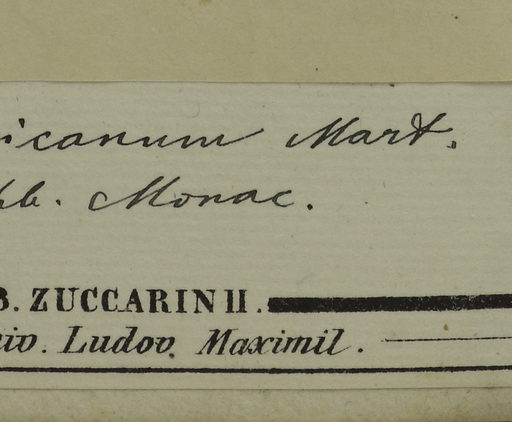 icanum Mart.
bb. Monac.
B. ZUCCARINII.
iv. Ludov. Maximil.